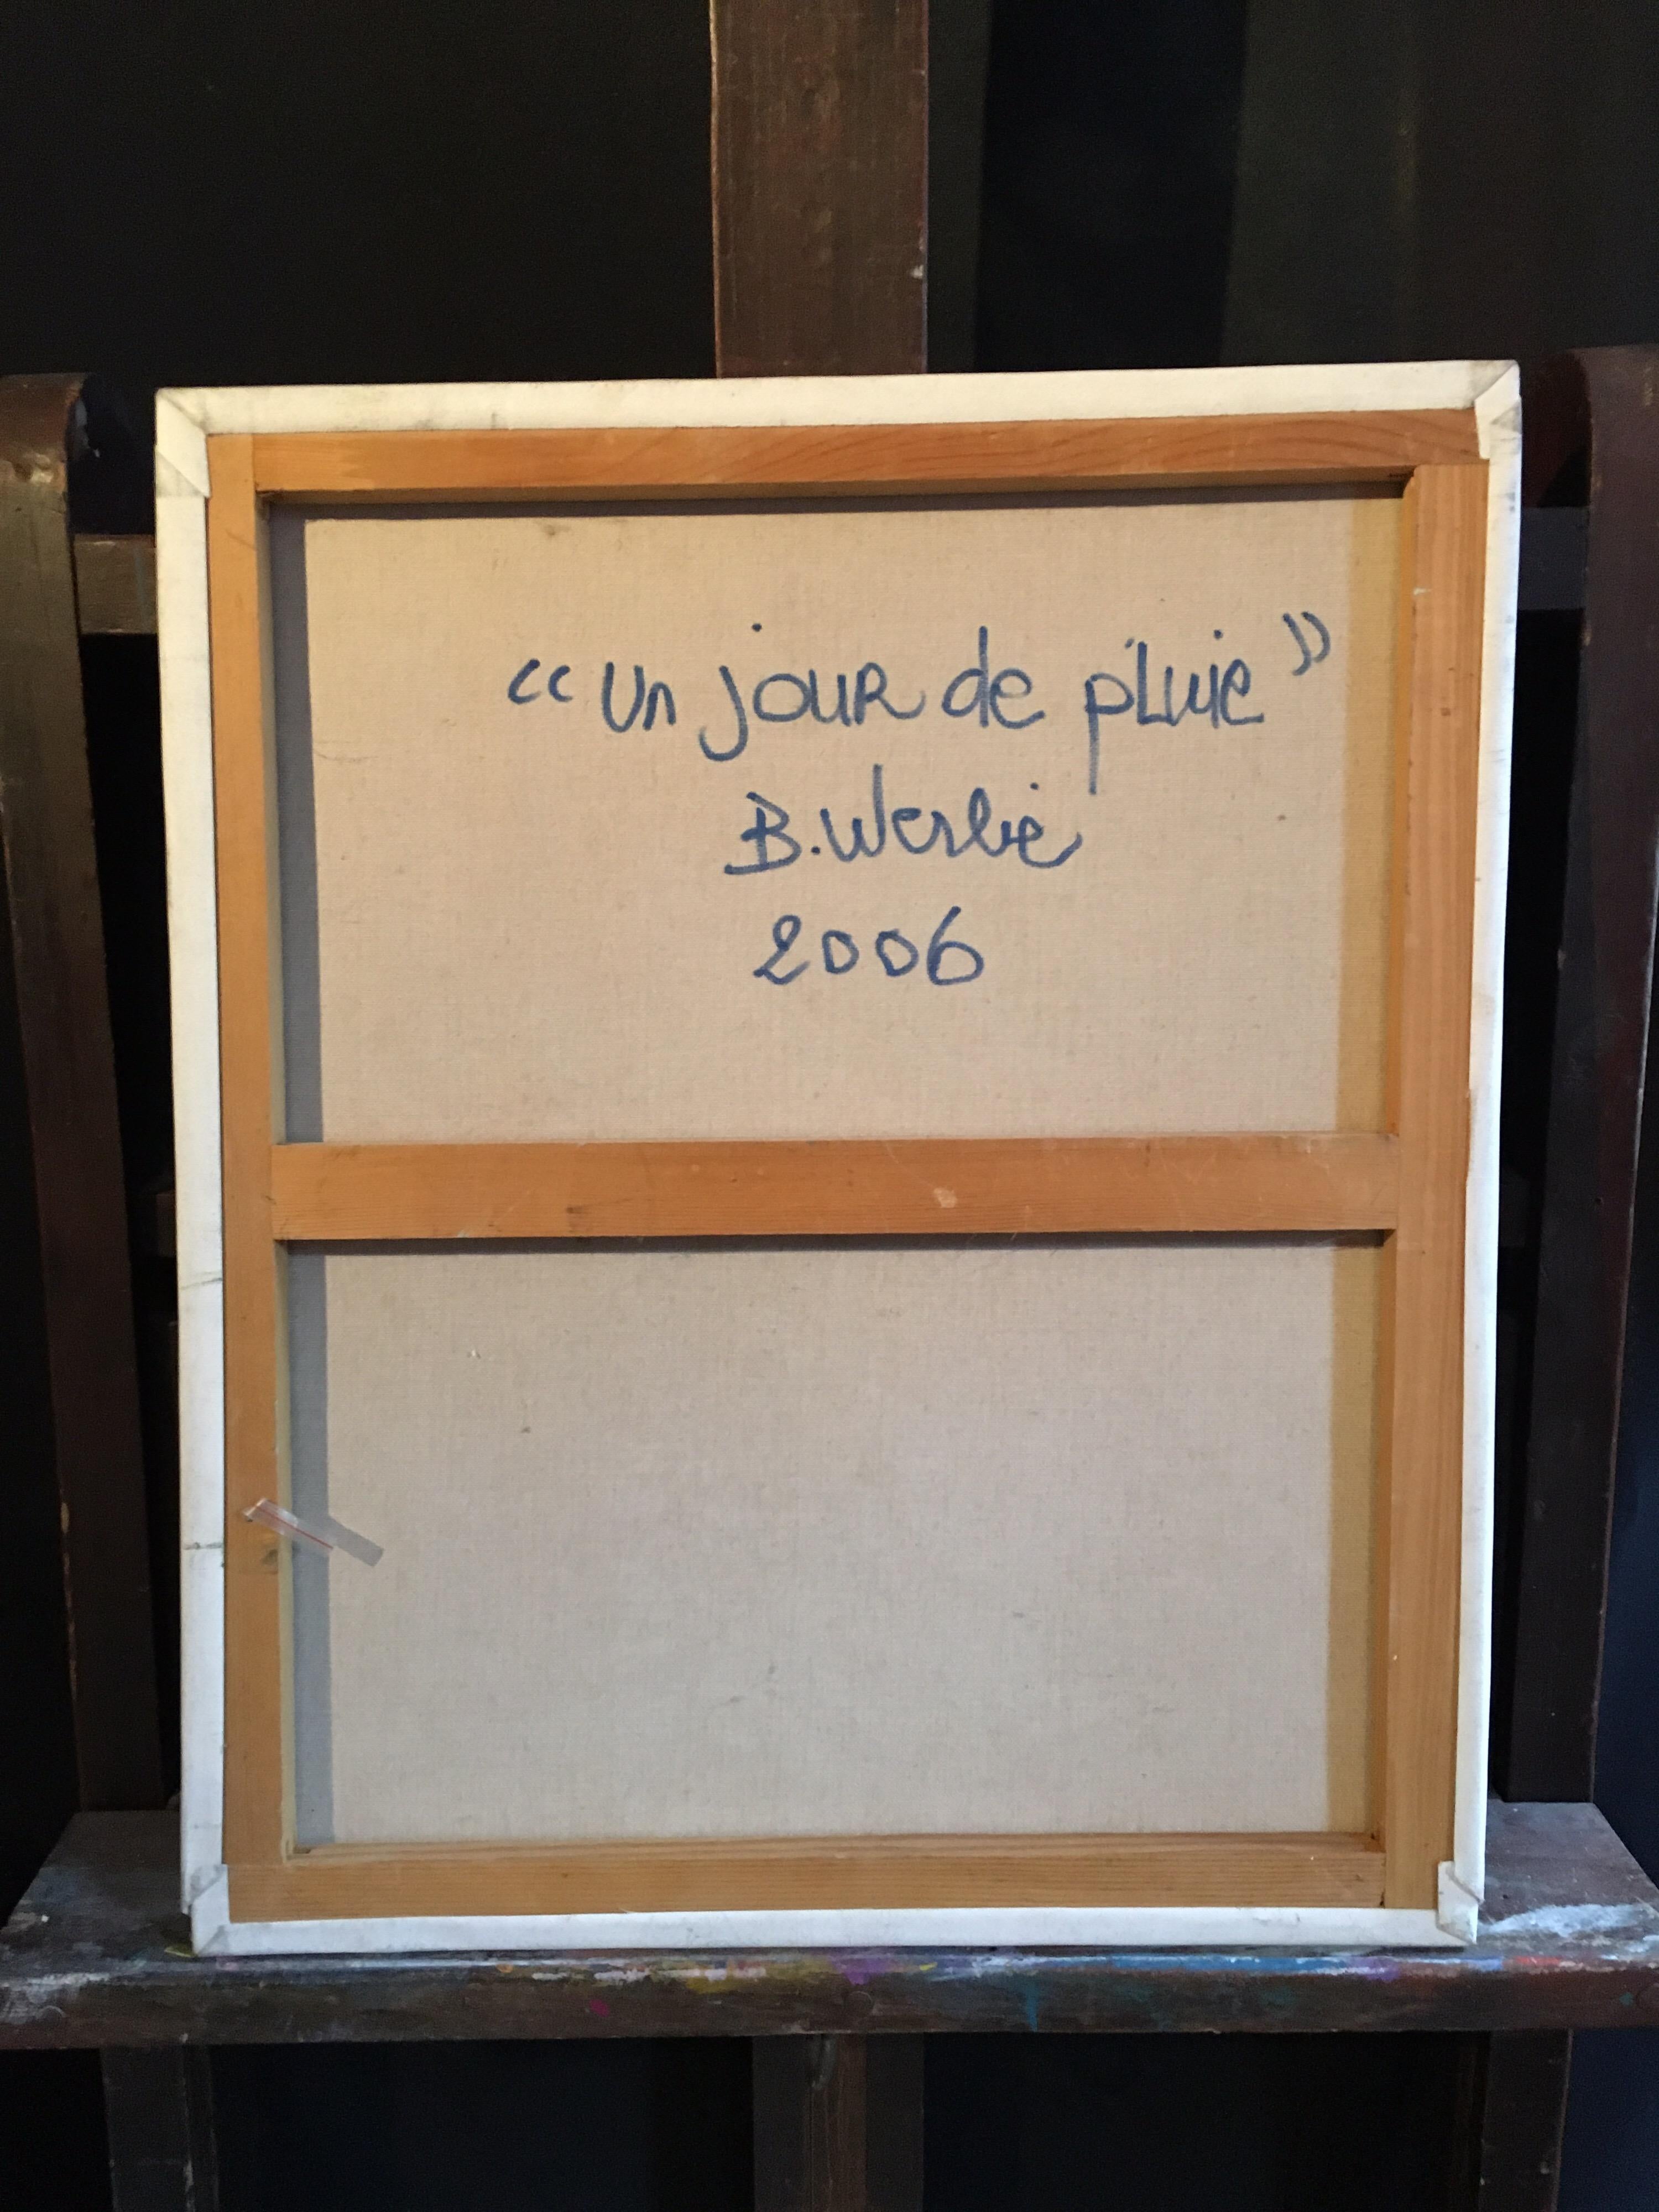 “Un jour de pluie”
B. Werlie
2006